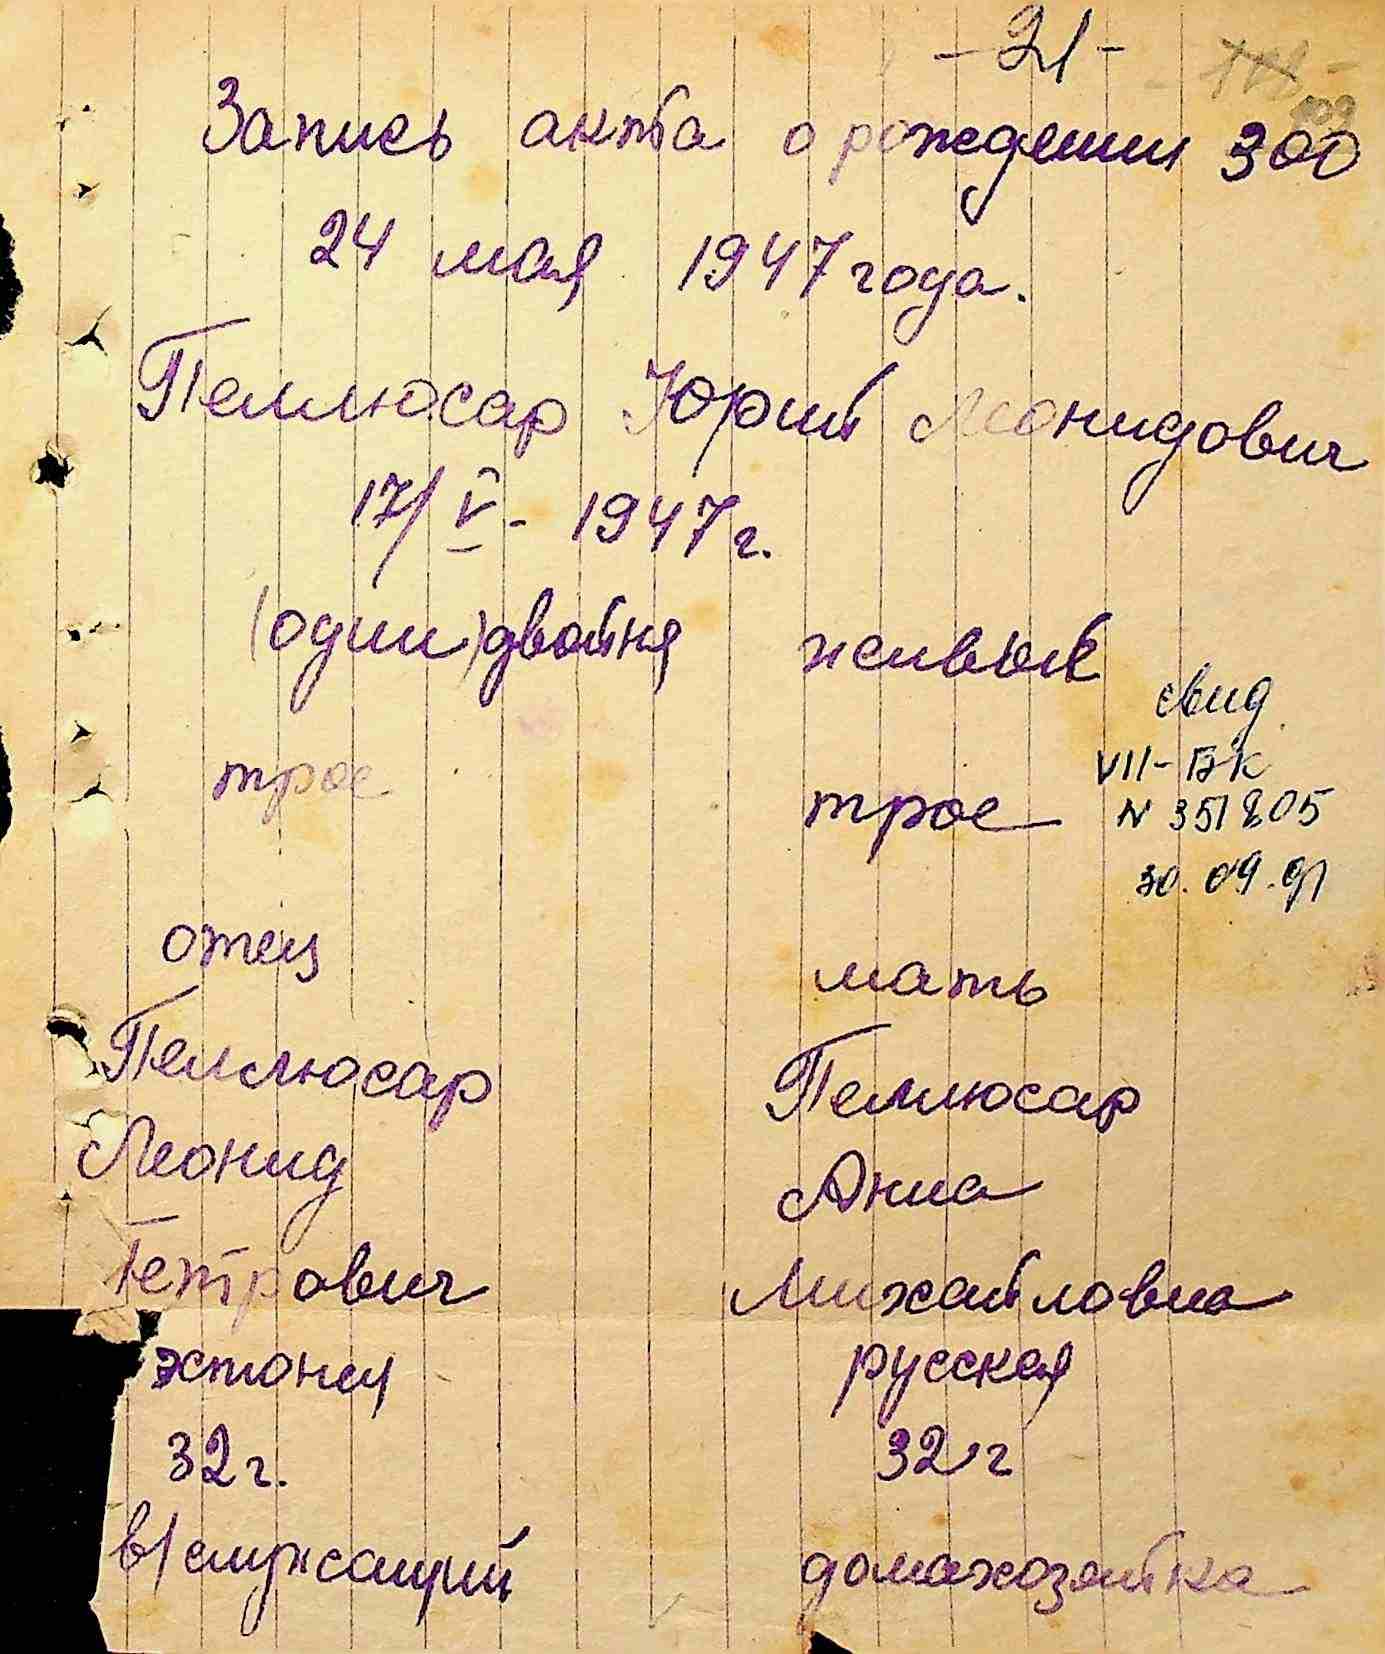 -21-
109
Запись акта о рождении 300
24 мая 1947 года.
Пеллюсар Юрий Леонидович
17/V - 1947 г.
(один) двойня живые
свид.
VII-БЖ
трое трое N 351205
30.09.91
отец мать
Пеллюсар Пеллюсар
Леонид Анна
Петрович Михайловна
эстонец русская
32 г. 32 г
в/служащий домахозяйка